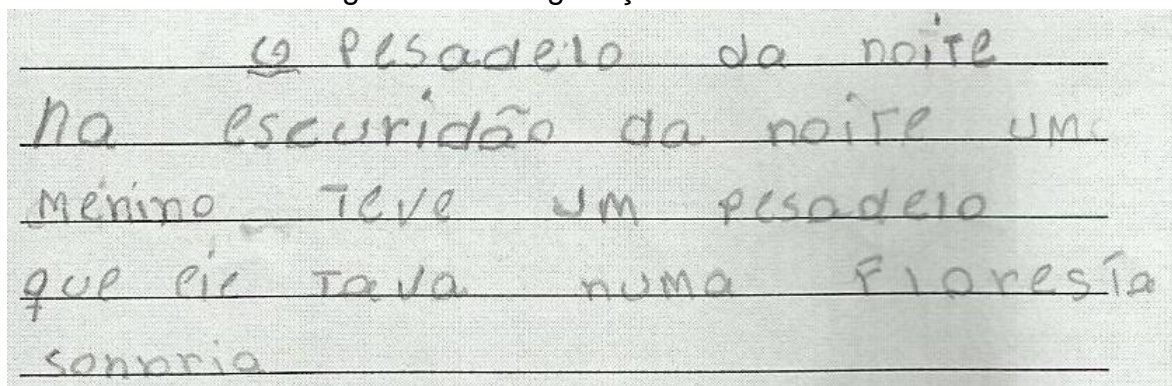 O Pesadelo da noite
Na escuridão da noite um
menino teve um pesadelo
que ele tava numa Floresta